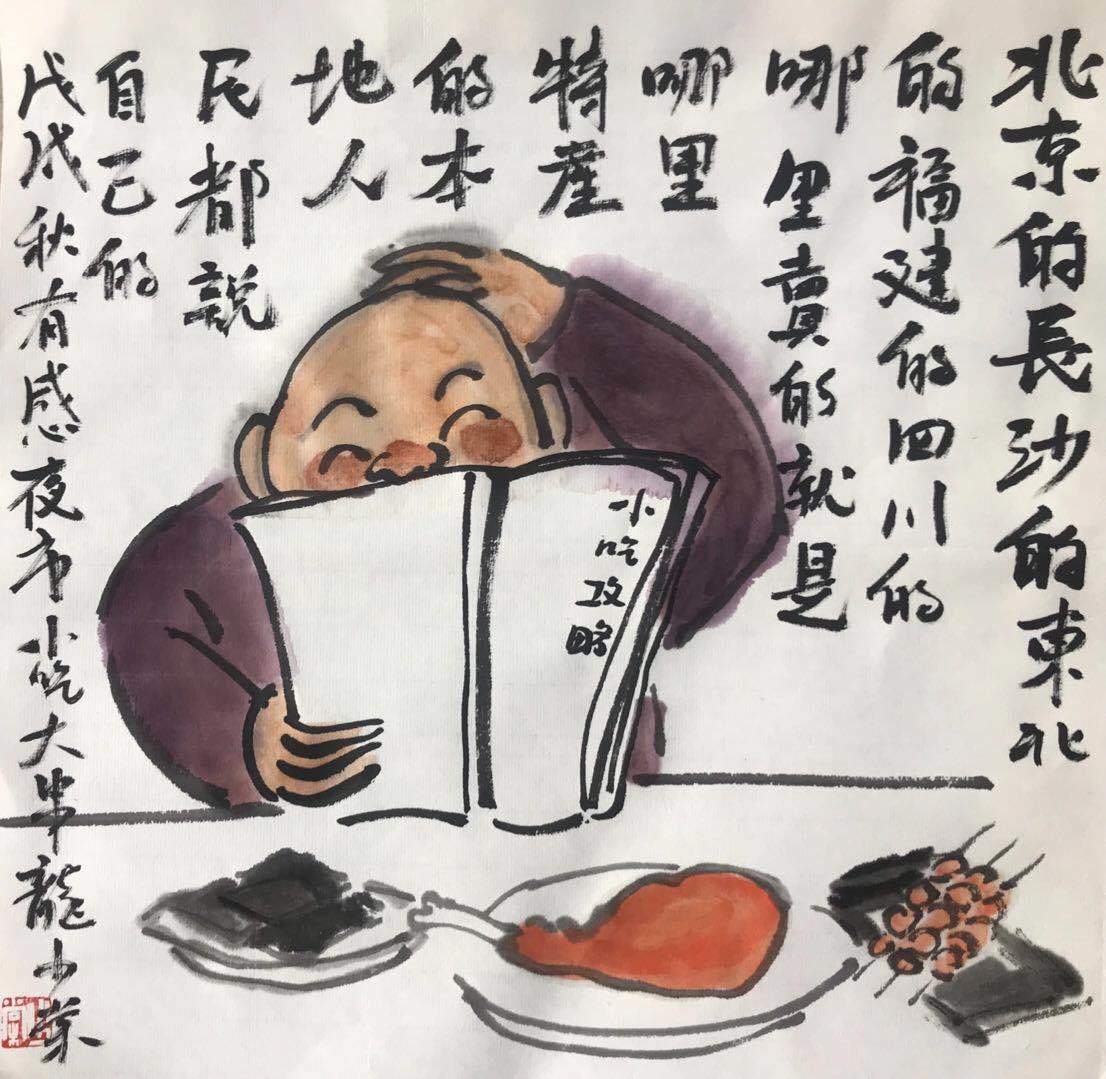 北京的長沙的東北
的福建的四川的
哪里賣的就是
哪里
特產
的本
地人
民都說
自己的
戊戌秋有感夜市小吃大串龍
小吃攻略